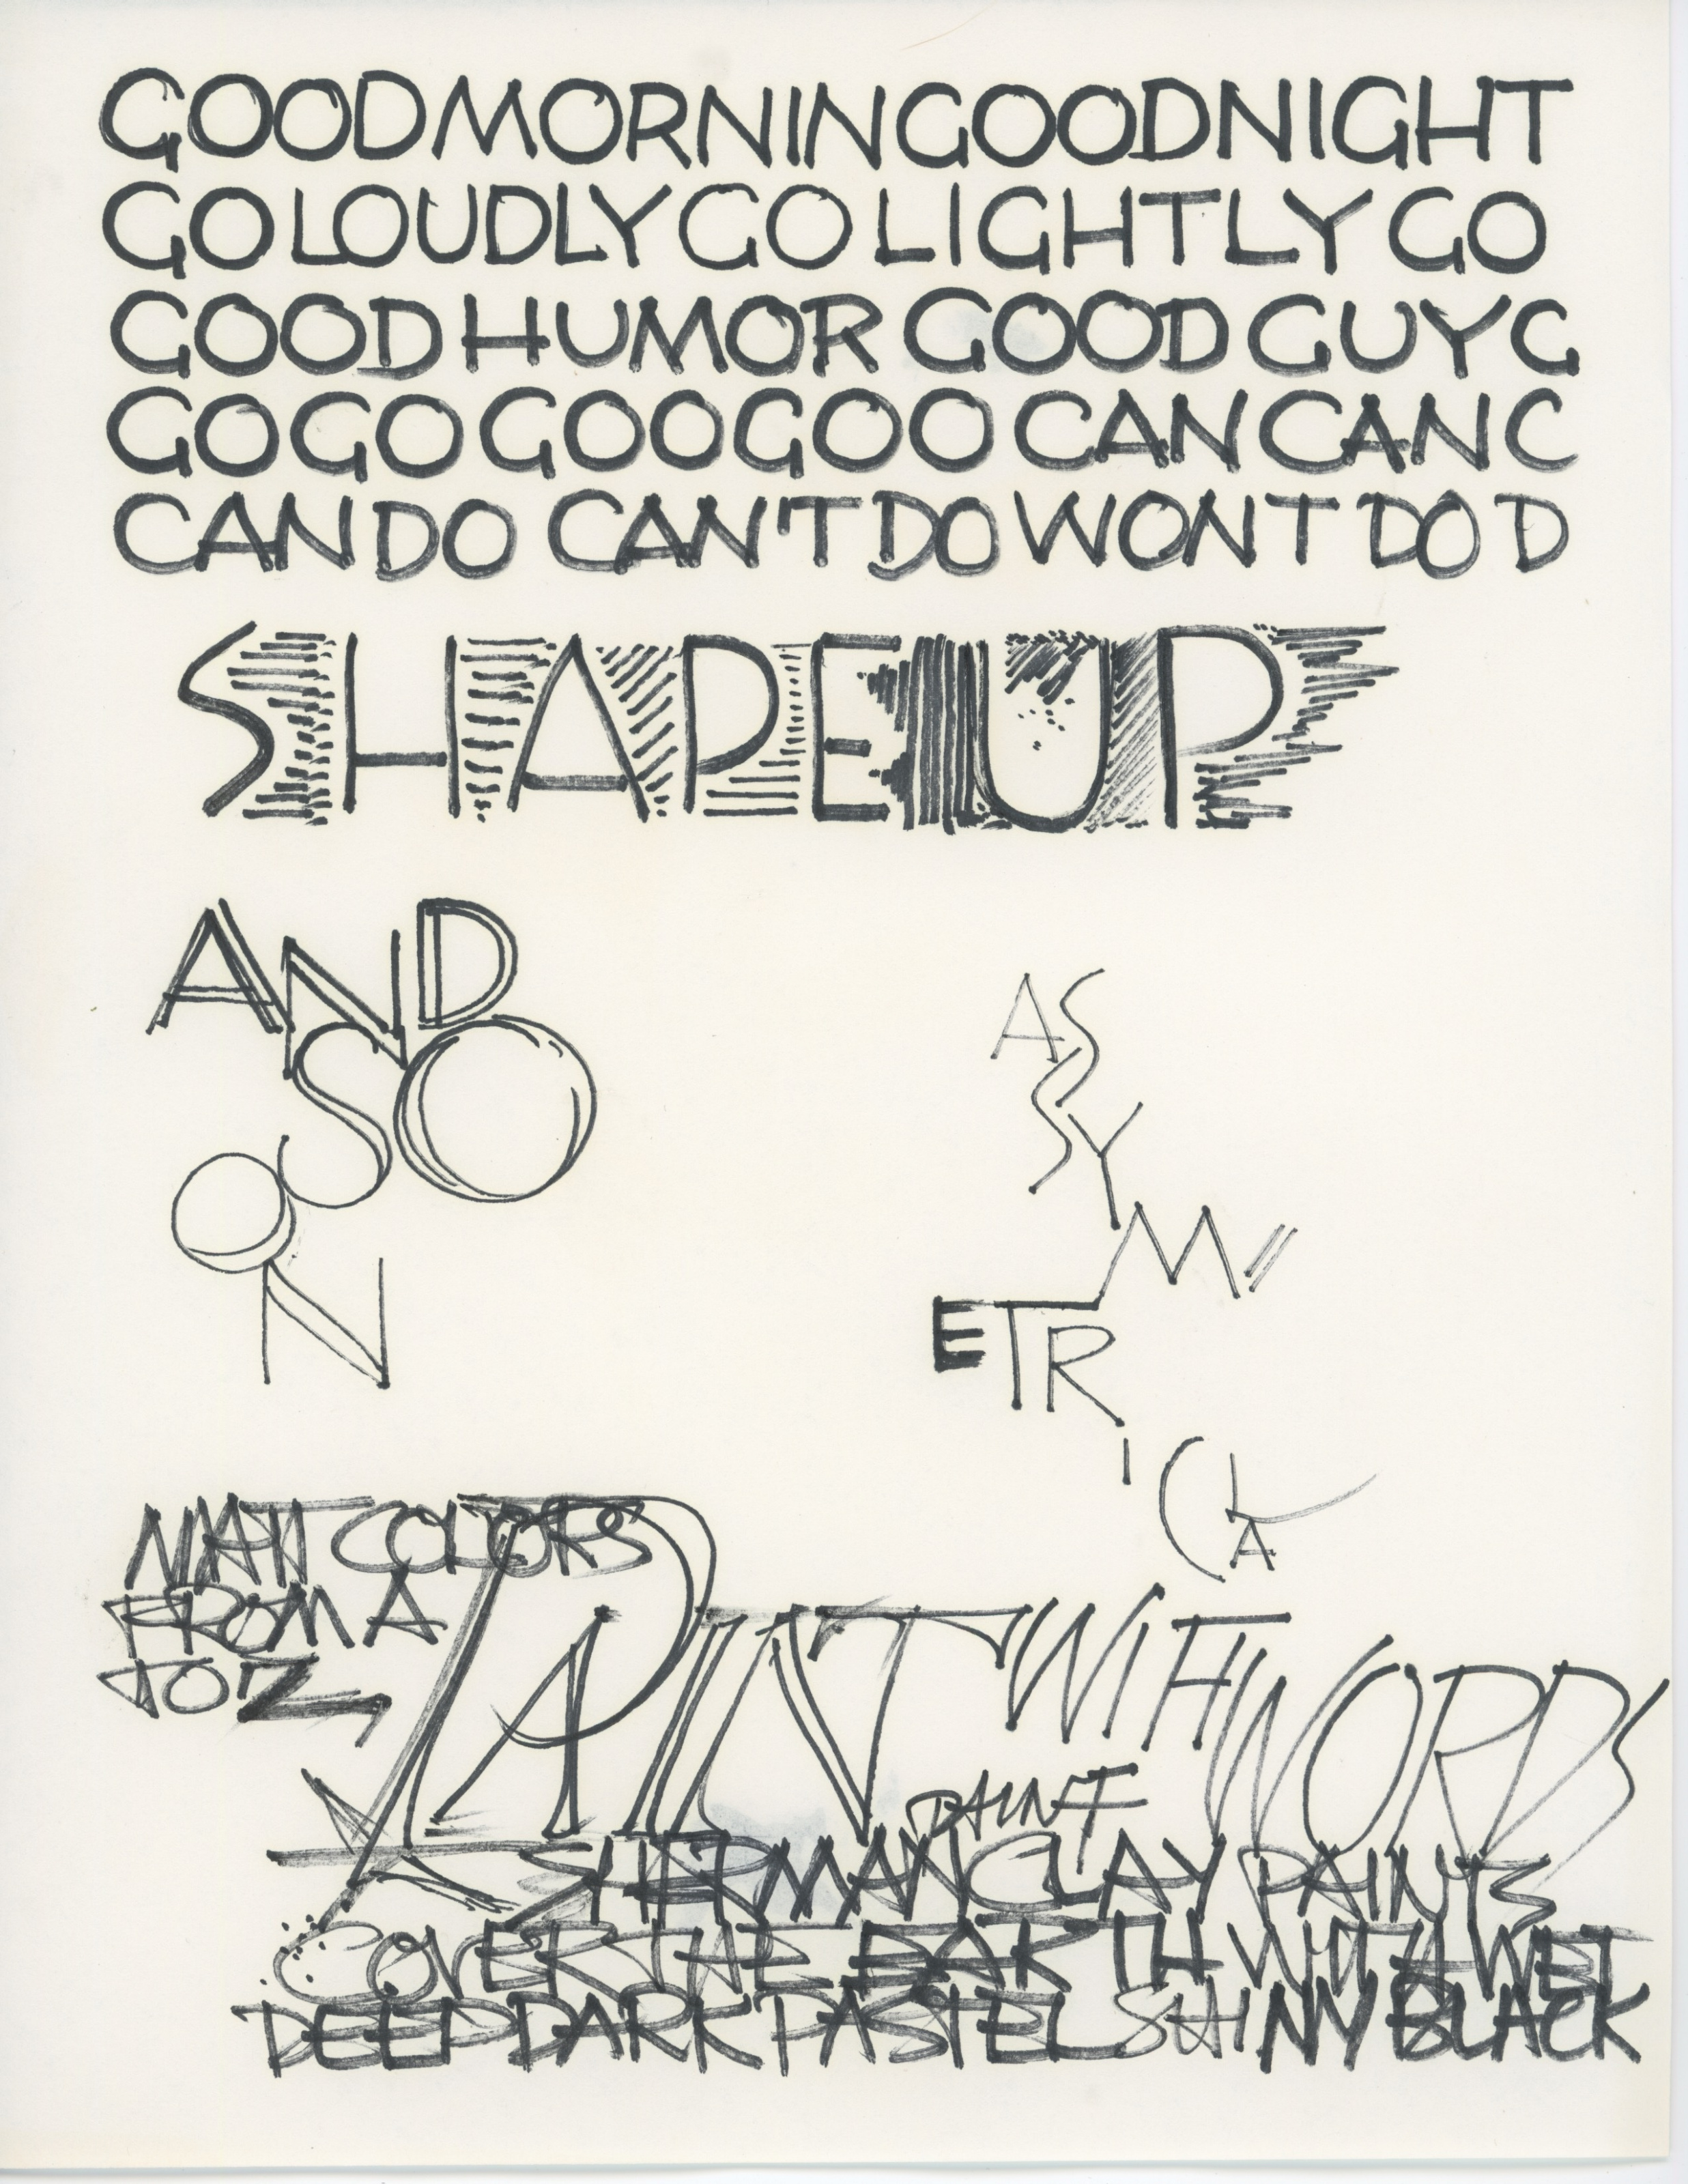 GOODMORNINGOODNIGHT
GO LOUDLY GO LIGHTLY GO
GOOD HUMOR GOOD GUY G
GOGO GOOGOO CAN CAN C
CAN DO CAN'T DO WONT DO D
SHAPE UP
AND
SO
ON
AS
SY
M
ETR
I
CLA
MATT COLORS
FROM A
TO Z
PAINT WITH WORDS
PAINT
SHARMAN CLAY PAINTS
COVER THE EARTH WITH WET
DEEP DARK PASTEL SHINY BLACK